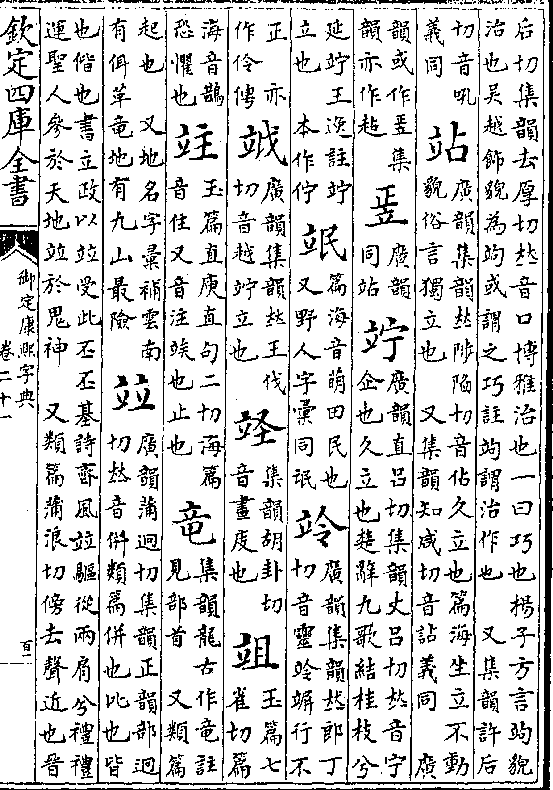 后切集韻去厚切𠀤音口博雅治也一曰巧也揚子方言竘貌
治也吳越飾貌為竘或謂之巧註竘謂治作也 又集韻許后
切音吼
義同
站
廣韻集韻𠀤陟陷切音佔久立也篇海坐立不動
貌俗言獨立也 又集韻知咸切音詀義同 廣
韻或作䇓集
韻亦作趈
䇓
廣韻
同站
竚
廣韻直呂切集韻丈呂切𠀤音宁
企也久立也楚辭九歌結桂枝兮
延竚王逸註竚
立也 本作佇
䇇
篇海音萌田民也
又野人字彙同氓
竛
廣韻集韻𠀤郎丁
切音靈竛竮行不
正 亦
作伶俜
䇐
廣韻集韻𠀤王伐
切音越竚立也
集韻胡卦切
音畫度也
玉篇七
雀切篇
海音鵲
恐懼也
玉篇直庚直句二切海篇
音住又音注竢也止也
竜
集韻龍古作竜註
見部首 又類篇
起也 又地名字彙補雲南
有佴革竜地有九山最險
竝
廣韻蒲迥切集韻正韻部迥
切𠀤音併類篇併也比也皆
也偕也書立政以竝受此丕丕基詩齊風竝驅從兩肩兮禮禮
運聖人參於天地竝於鬼神 又類篇蒲浪切傍去聲近也音
欽定四庫全書
御定康熙字典
卷二十一